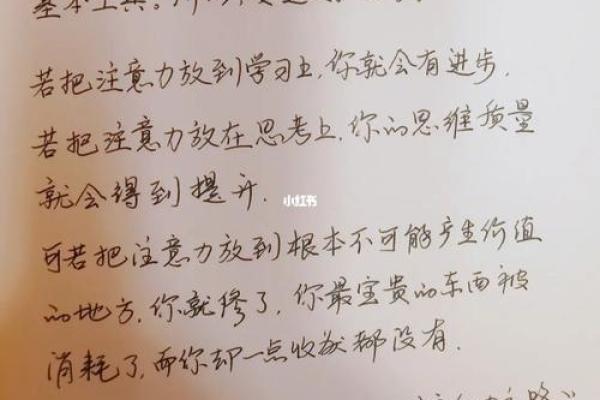 基本工具。
若把注意力放到学习上,你就会有进步,
若把注意力放在思考上,你的思维质量
就会得到提升.
小红书
可若把注意力放到根本不可能产生价值
的地方,你就惨了,你最宝贵的东西被
消耗了,而你却一点收获都没有.